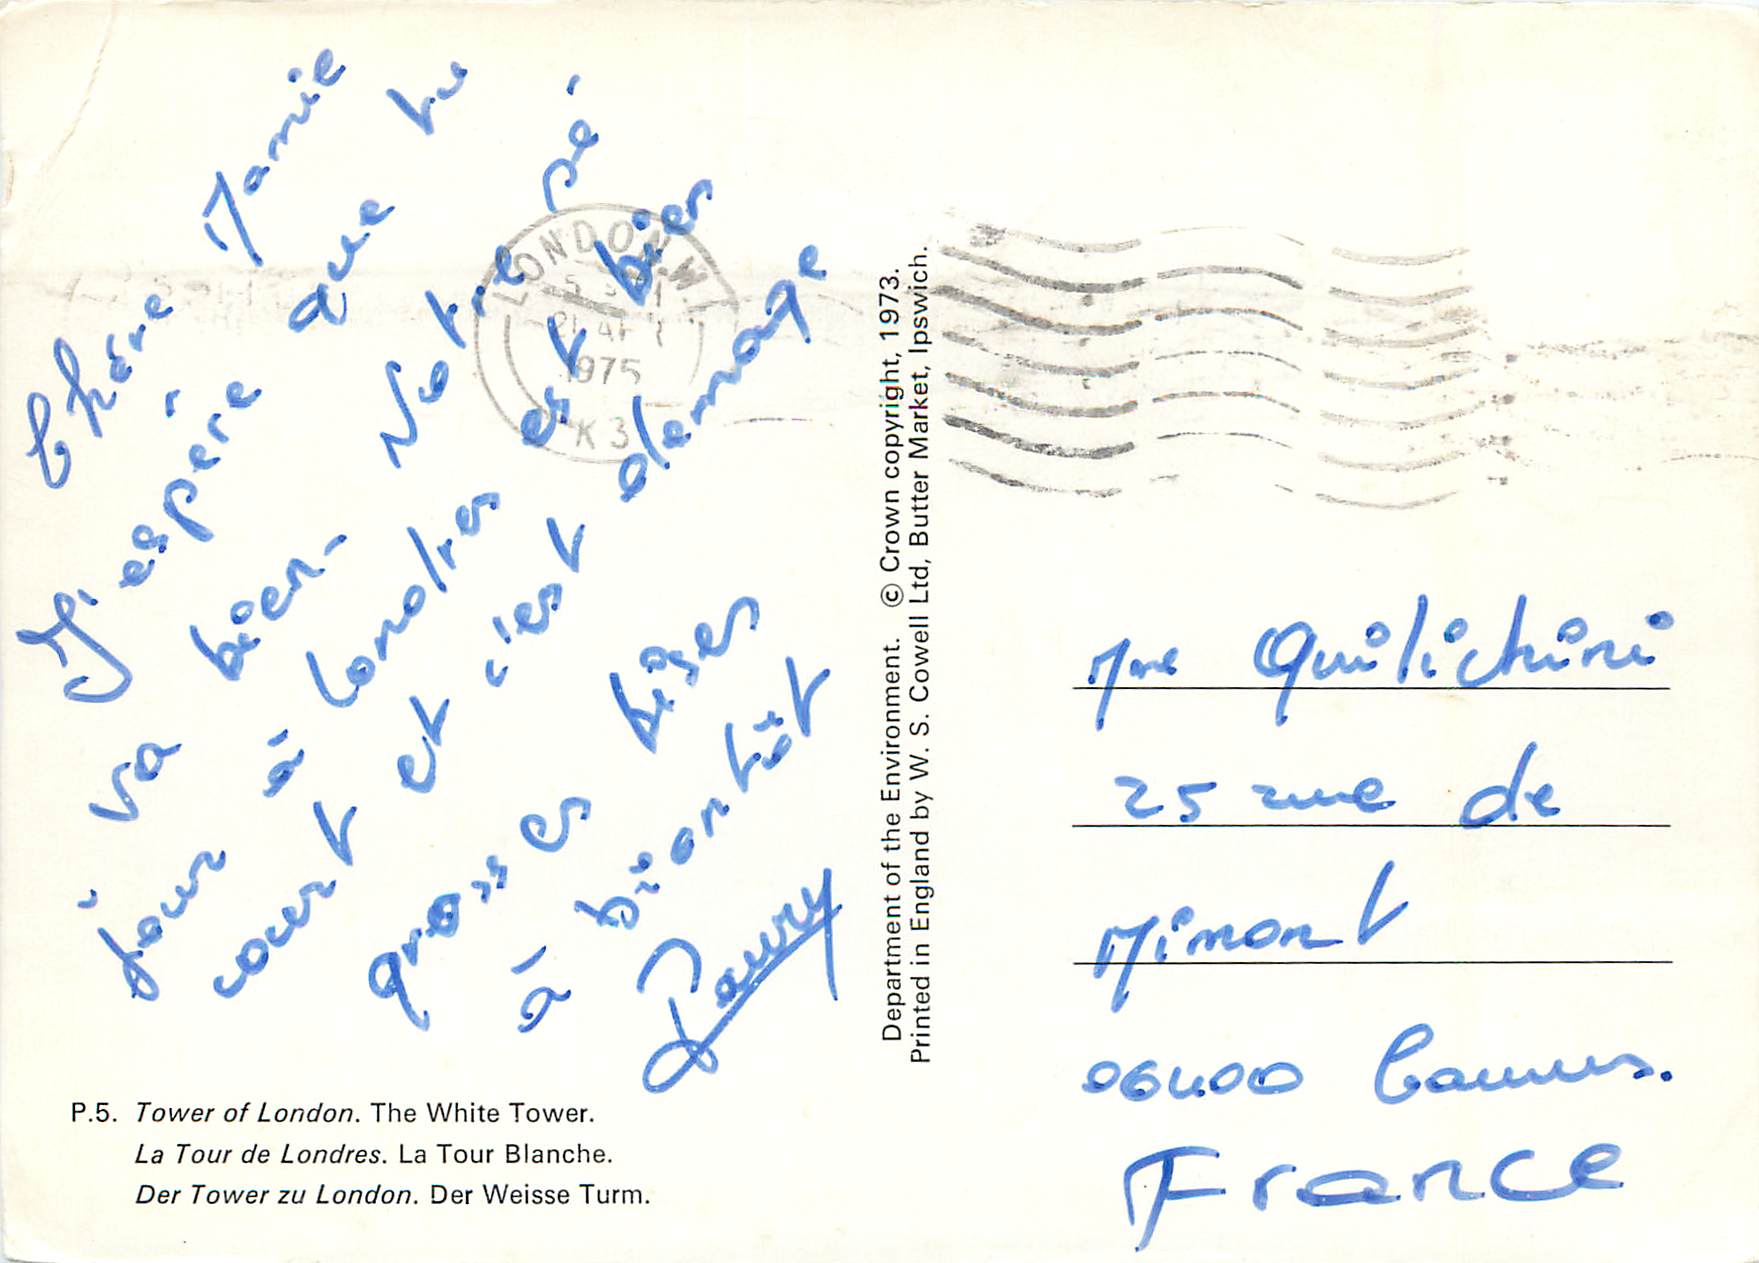 Chère Mamie
J'espère que tu
va bien. Notre sé
jour à Londres est bien
court et c'est domage
grosses bises
à biantôt
LONDON W1
1975
K 3
P.5. Tower of London. The White Tower.
La Tour de Londres. La Tour Blanche.
Der Tower zu London. Der Weisse Turm.
Department of the Environment. © Crown copyright, 1973.
Printed in England by W. S. Cowell Ltd, Butter Market, Ipswich.
Mme Quilichini
25 rue de
Mimont
06400 Cannes.
France